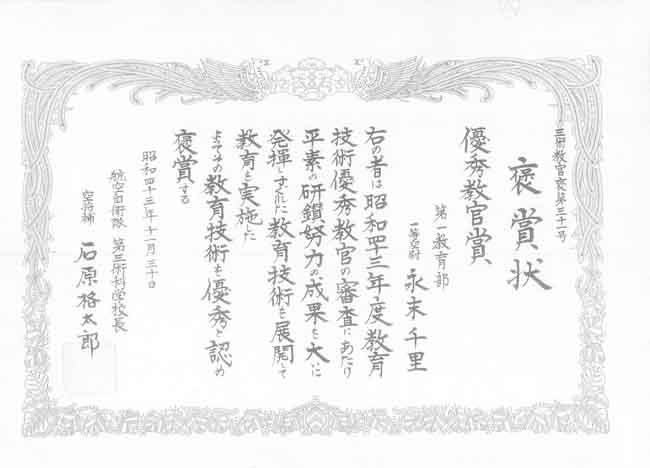 三術教官褒第三十一号
褒賞状
優秀教官賞
第一教育部
一等空尉 永末千里
右の者は昭和四十三年度教育
技術優秀教官の審査にあたり
平素の研鑚努力の成果を大いに
発揮しすぐれた教育技術を展開して
教育を実施した
よってその教育技術を優秀と認め
褒賞する
昭和四十三年十一月三十日
航空自衛隊 第三術科学校長
空将補 石原格太郎